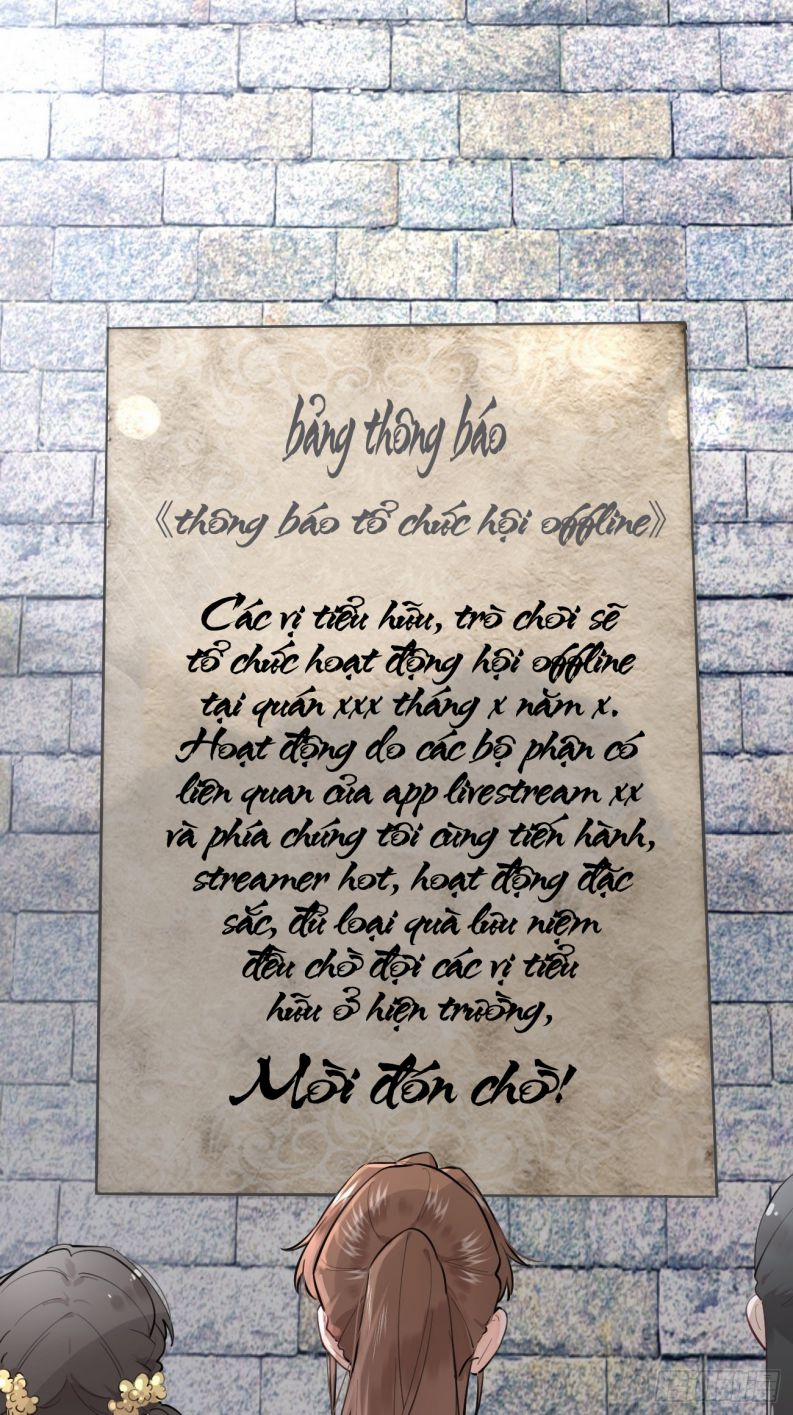 bảng thông báo
《thông báo tổ chức hội offline》
Các vị tiểu hữu, trò chơi sẽ
tổ chức hoạt động hội offline
tại quán xxx tháng x năm x.
Hoạt động do các bộ phận có
liên quan của app livestream xx
và phía chúng tôi cùng tiến hành,
streamer hot, hoạt động đặc
sắc, đủ loại quà lưu niệm
đều chờ đợi các vị tiểu
hữu ở hiện trường,
Mời đón chờ!